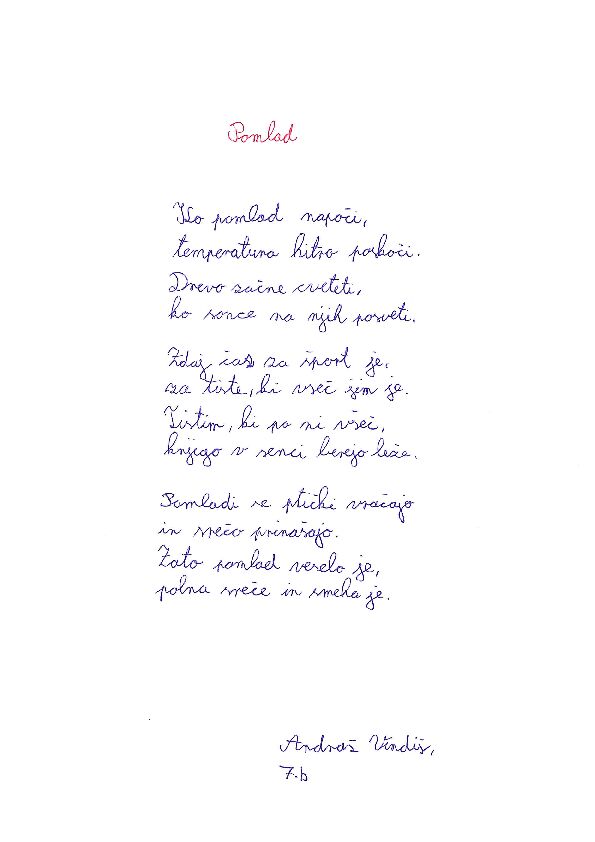 Pomlad
Ko pomlad napoči,
temperatura hitro poskoči.
Drevo začne cveteti,
ko sonce na njih posveti.
Zdaj čas za šport je,
za tiste, ki všeč jim je.
Tistim, ki pa ni všeč,
knjigo v senci berejo leže.
Pomladi se ptički vračajo
in srečo prinašajo.
Zato pomlad veselo je,
polna sreče in smeha je.
Andraž Vindiš,
7.b